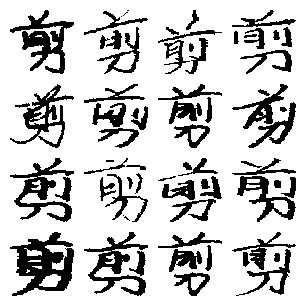 剪剪剪剪
剪剪剪剪
剪剪剪剪
剪剪剪剪